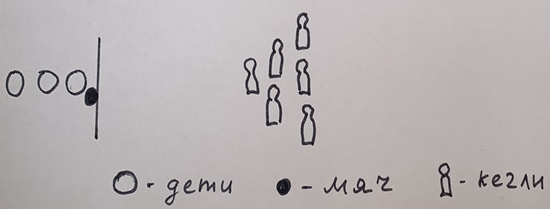 - дети - мяч - кегли